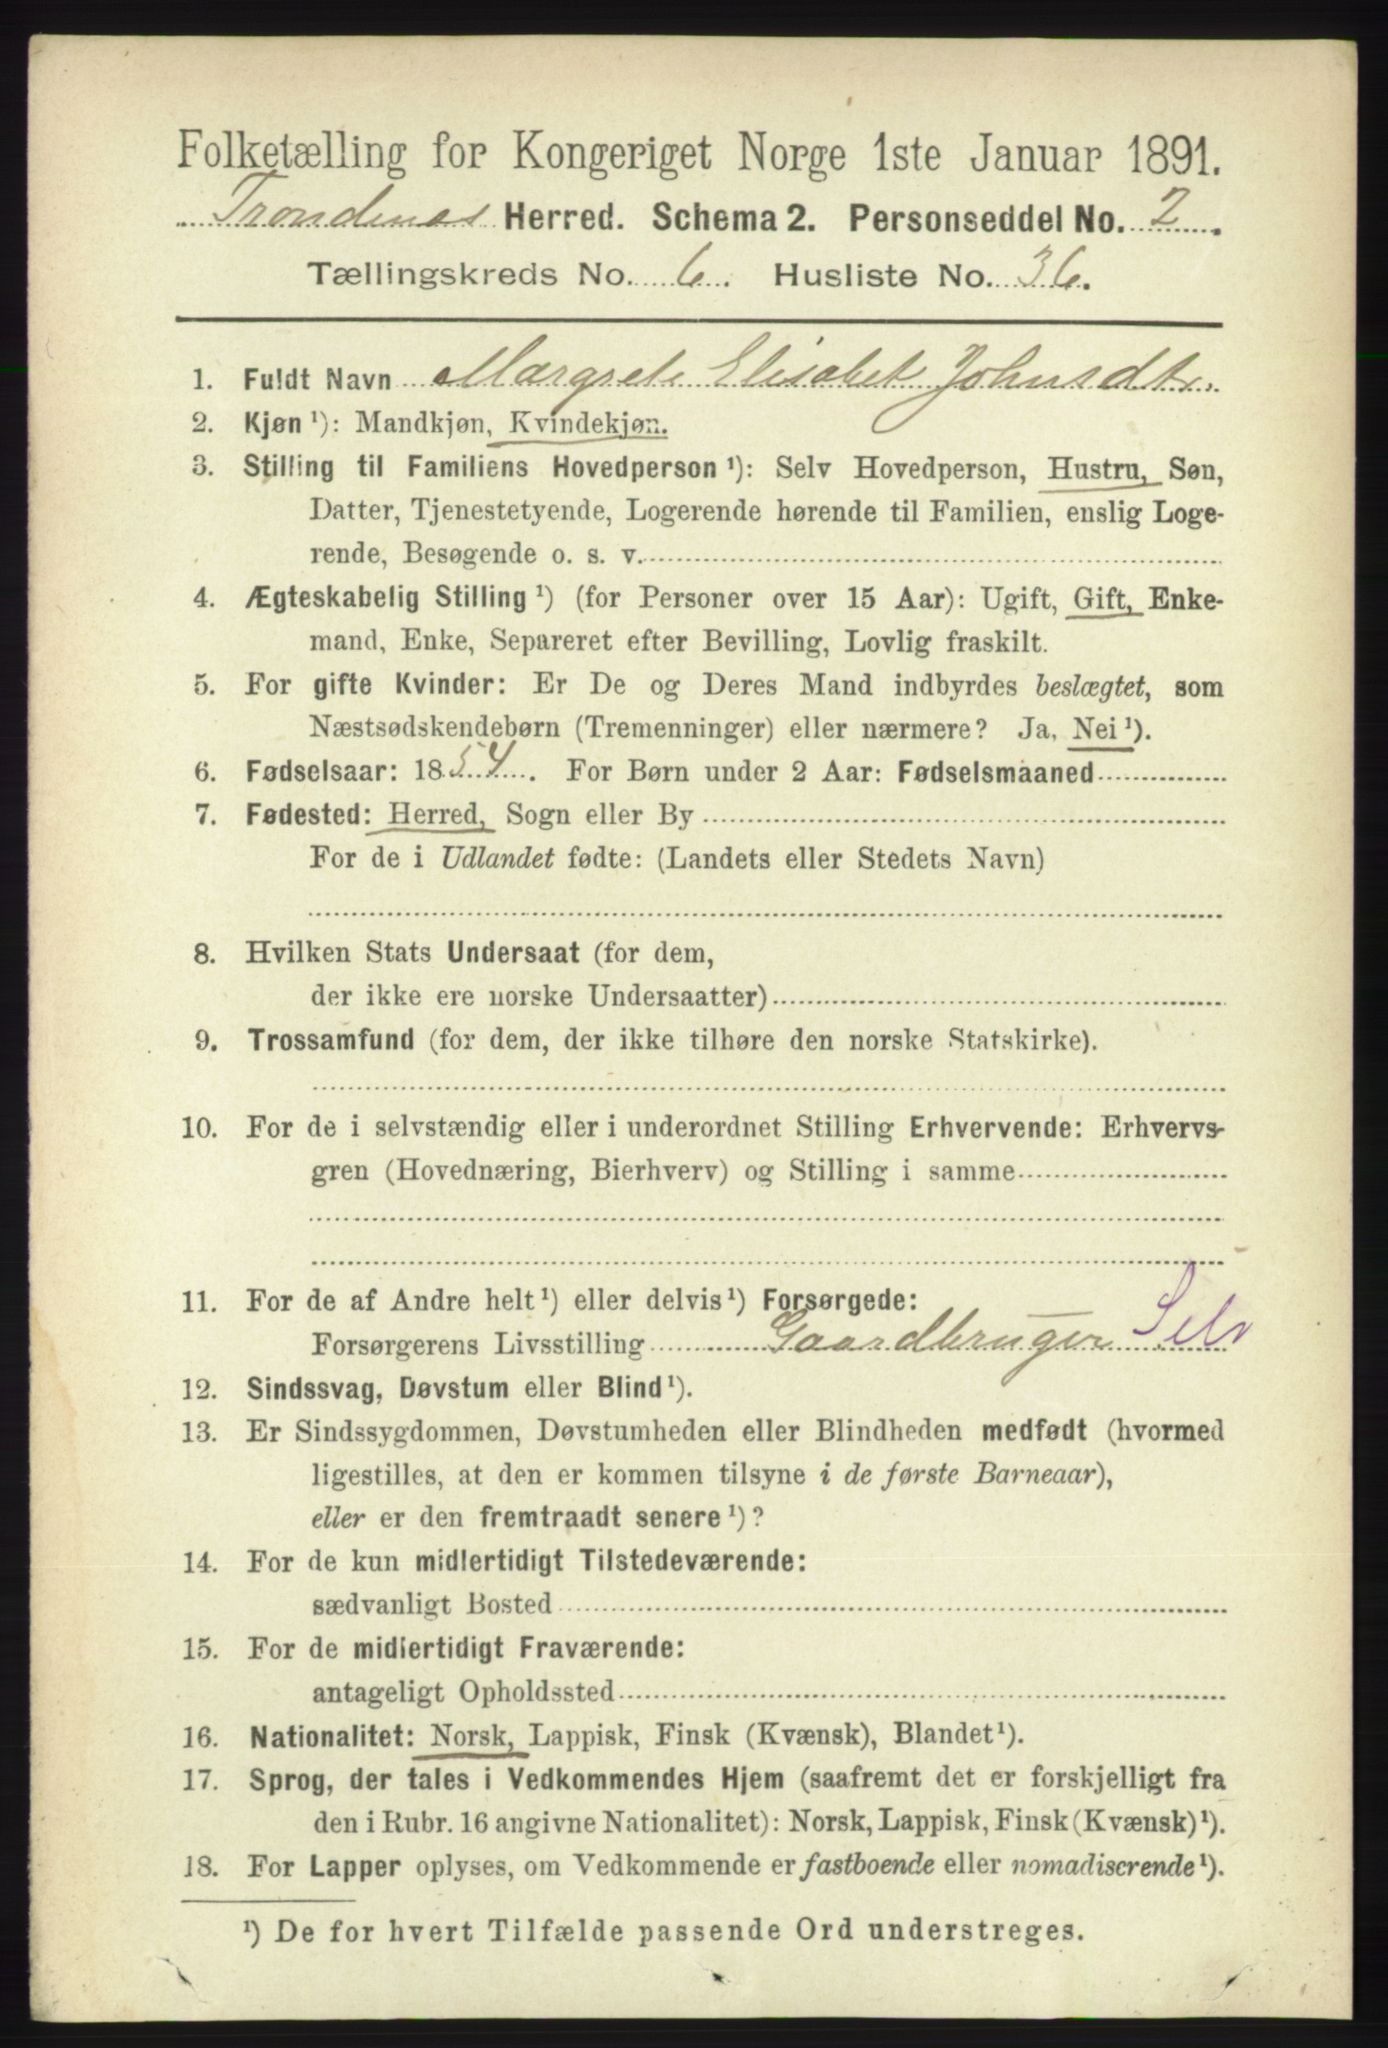 Folketælling for Kongeriget Norge 1ste Januar 1891.
Trondenes Herred. Schema 2. Personseddel No. 2.
Tællingskreds No. 6. Husliste No. 36.
1. Fuldt Navn Margrete Elisabet Johnsdtr.
2. Kjøn¹): Mandkjøn, Kvindekjøn.
3. Stilling til Familiens Hovedperson¹): Selv Hovedperson, Hustru, Søn,
Datter, Tjenestetyende, Logerende hørende til Familien, enslig Loge-
rende, Besøgende o. s. v.
4. Ægteskabelig Stilling¹) (for Personer over 15 Aar): Ugift, Gift, Enke-
mand, Enke, Separeret efter Bevilling, Lovlig fraskilt.
5. For gifte Kvinder: Er De og Deres Mand indbyrdes beslægtet, som
Næstsødskendebørn (Tremenninger) eller nærmere? Ja, Nei¹).
6. Fødselsaar: 1854. For Børn under 2 Aar: Fødselsmaaned
7. Fødested: Herred, Sogn eller By
For de i Udlandet fødte: (Landets eller Stedets Navn)
8. Hvilken Stats Undersaat (for dem,
der ikke ere norske Undersaatter)
9. Trossamfund (for dem, der ikke tilhøre den norske Statskirke).
10. For de i selvstændig eller i underordnet Stilling Erhvervende: Erhvervs-
gren (Hovednæring, Bierhverv) og Stilling i samme
11. For de af Andre helt¹) eller delvis¹) Forsørgede:
Forsørgerens Livsstilling Gaardbruger Selv
12. Sindssvag, Døvstum eller Blind¹).
13. Er Sindssygdommen, Døvstumheden eller Blindheden medfødt (hvormed
ligestilles, at den er kommen tilsyne i de første Barneaar),
eller er den fremtraadt senere¹)?
14. For de kun midlertidigt Tilstedeværende:
sædvanligt Bosted
15. For de midlertidigt Fraværende:
antageligt Opholdssted
16. Nationalitet: Norsk, Lappisk, Finsk (Kvænsk), Blandet¹).
17. Sprog, der tales i Vedkommendes Hjem (saafremt det er forskjelligt fra
den i Rubr. 16 angivne Nationalitet): Norsk, Lappisk, Finsk (Kvænsk)¹).
18. For Lapper oplyses, om Vedkommende er fastboende eller nomadiserende¹).
¹) De for hvert Tilfælde passende Ord understreges.